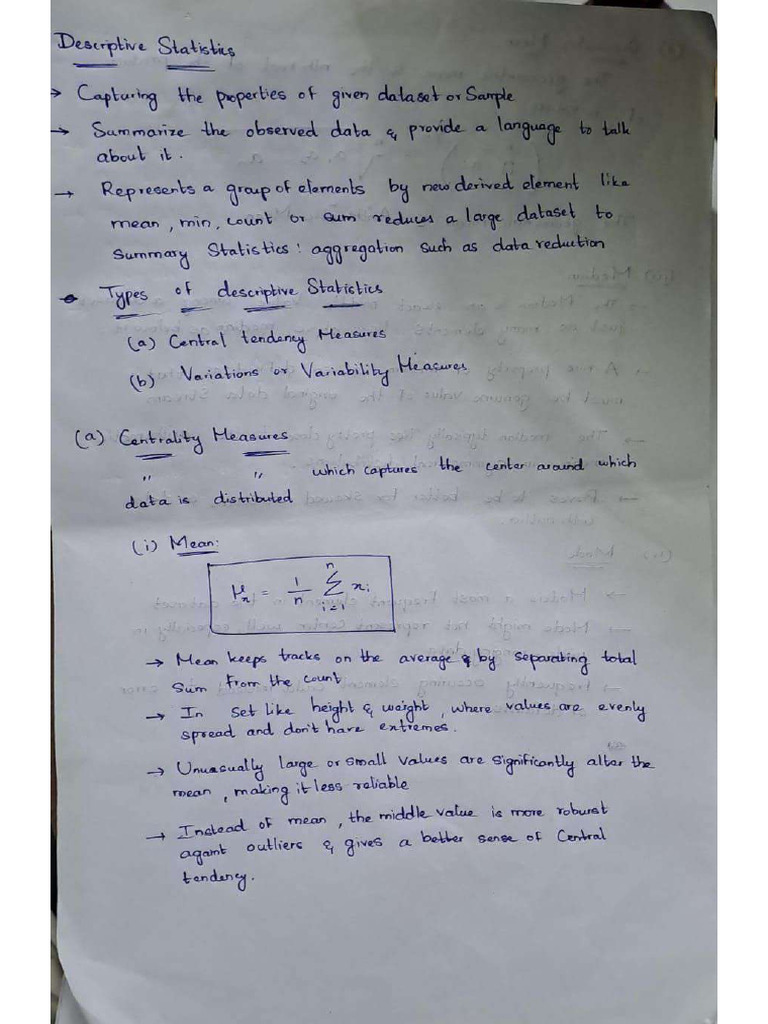 Descriptive Statistics
→ Capturing the properties of given dataset or Sample
→ Summarize the observed data & provide a language to talk
about it.
→ Represents a group of elements by new derived element like
mean, min, count or sum reduces a large dataset to
Summary Statistics: aggregation such as data reduction
• Types of descriptive Statistics
(a) Central tendency Measures
(b) Variations or Variability Measures
(a) Centrality Measures
" " which captures the center around which
data is distributed
(i) Mean:
μₓ = 1/n n∑i=1 xi
→ Mean keeps tracks on the average & by separating total
Sum from the count
→ In set like height & weight, where values are evenly
spread and don't have extremes.
→ Unusually large or small values are significantly alter the
mean, making it less reliable
→ Instead of mean, the middle value is more robust
againt outliers & gives a better sense of Central
tendency.